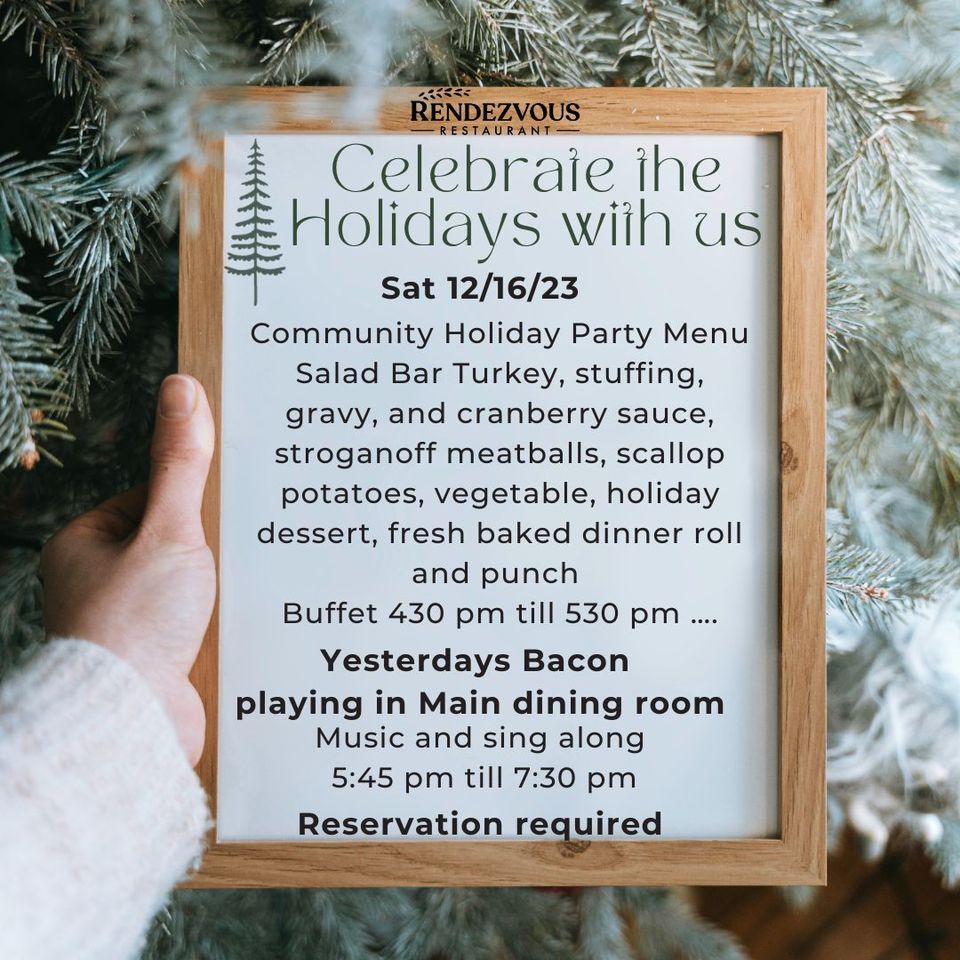 RENDEZVOUS
RESTAURANT
Celebrate the
Holidays with us
Sat 12/16/23
Community Holiday Party Menu
Salad Bar Turkey, stuffing,
gravy, and cranberry sauce,
stroganoff meatballs, scallop
potatoes, vegetable, holiday
dessert, fresh baked dinner roll
and punch
Buffet 430 pm till 530 pm ....
Yesterdays Bacon
playing in Main dining room
Music and sing along
5:45 pm till 7:30 pm
Reservation required